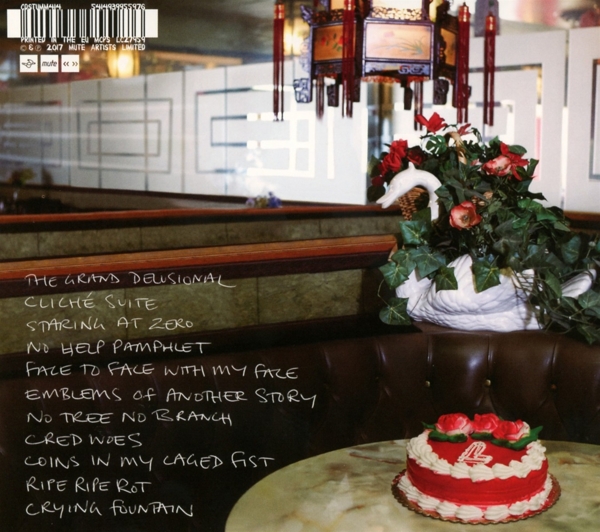 CDSTUMM414 5414939955976
PRINTED IN THE EU MCPS LC27454
© & ℗ 2017 MUTE ARTISTS LIMITED
mute
THE GRAND DELUSIONAL
CLICHÉ SUITE
STARING AT ZERO
NO HELP PAMPHLET
FACE TO FACE WITH MY FACE
EMBLEMS OF ANOTHER STORY
NO TREE NO BRANCH
CRED WOES
COINS IN MY CAGED FIST
RIPE RIPE ROT
CRYING FOUNTAIN